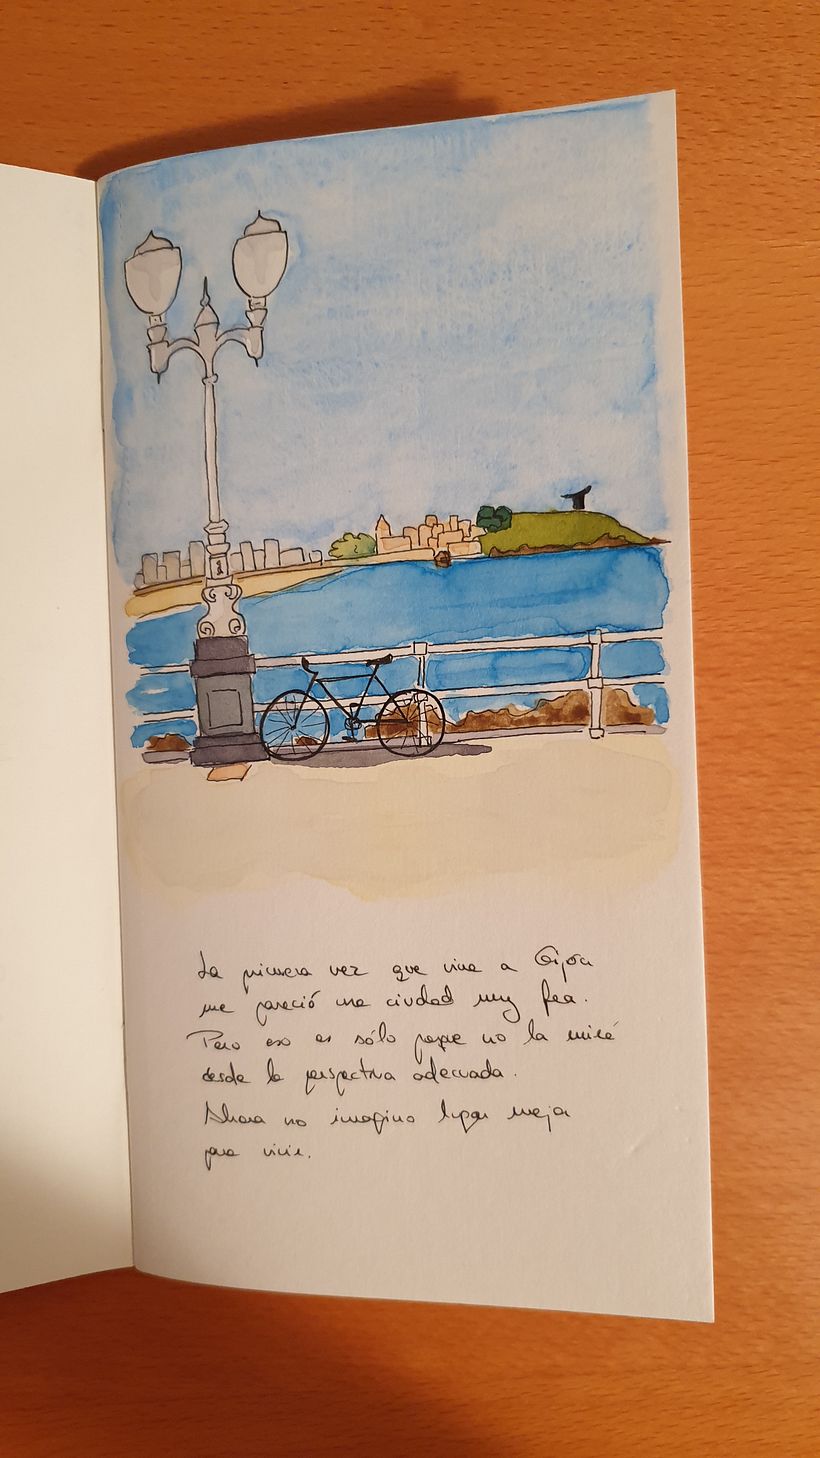 La primera vez que vine a Gijón
me pareció una ciudad muy fea.
Pero eso es sólo porque no la miré
desde la perspectiva adecuada.
Ahora no imagino lugar mejor
para vivir.